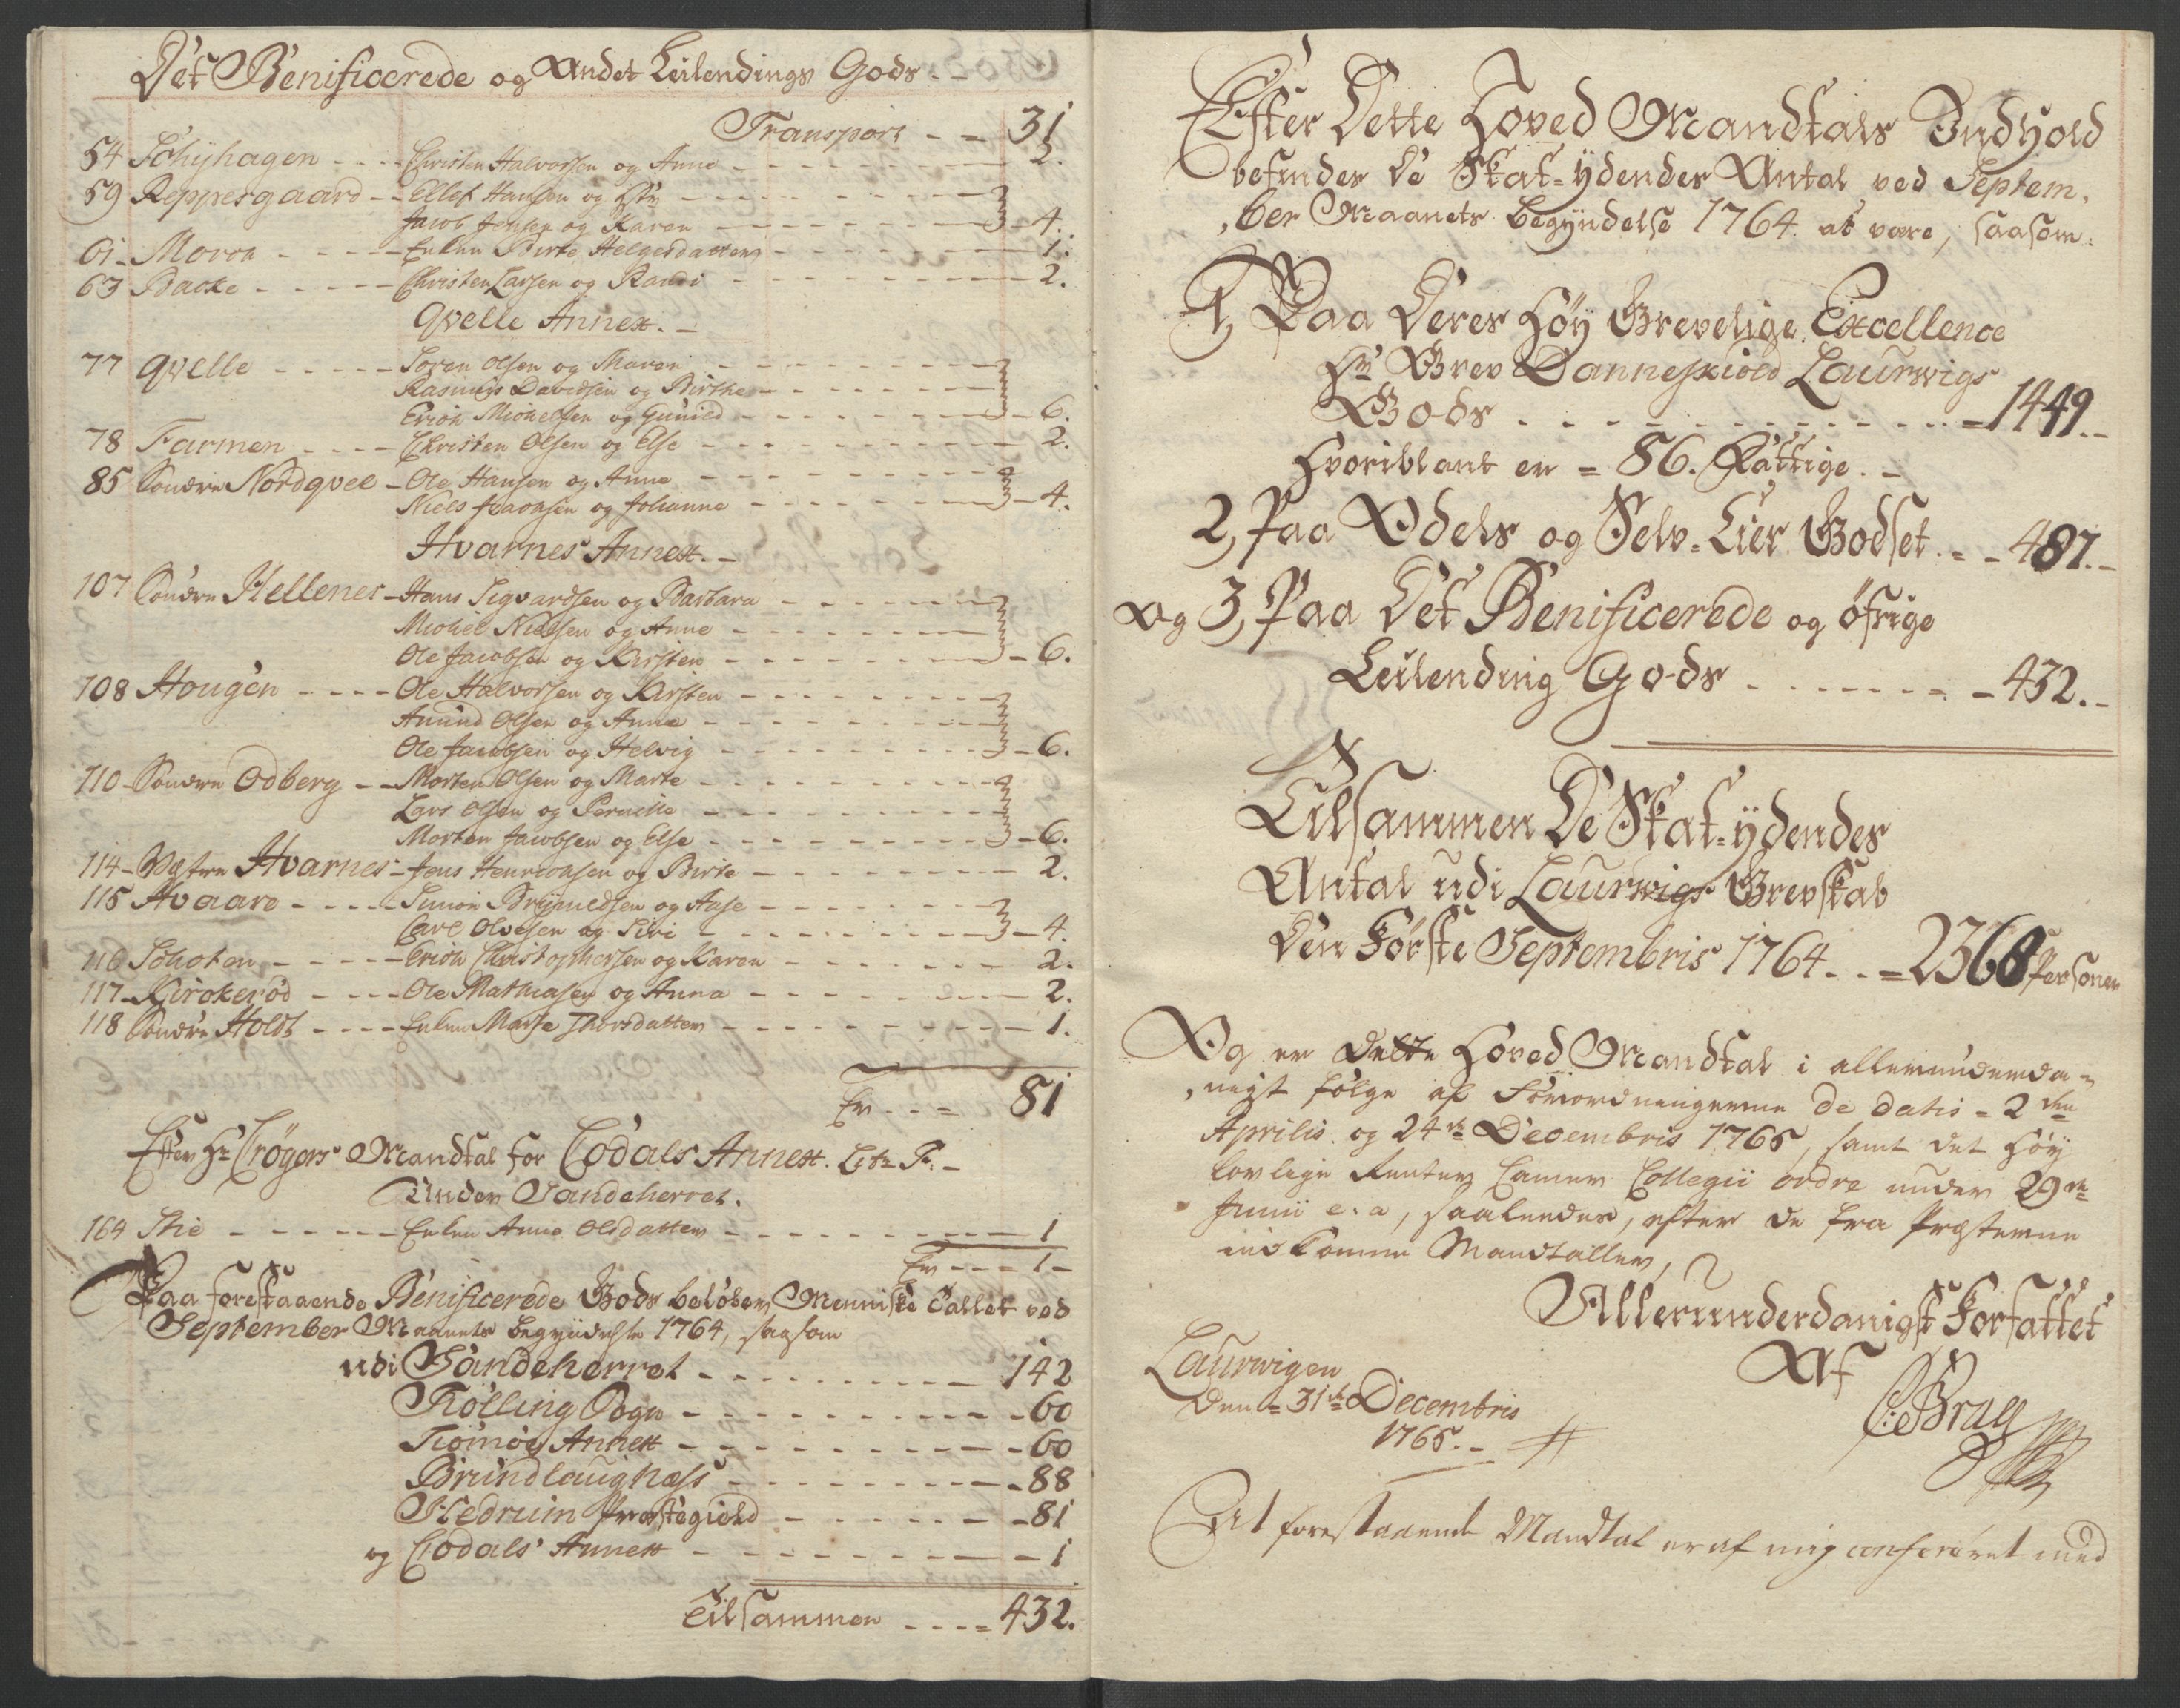 Det Benificerede og Andet Leilendings Gods. -
Transport - - 31
54 Schijhagen - - - - Christen Halvorsen og Anne - - - 2.
59 Reppesgaard - - Ellef Hansen og Hu - - -
Jacob Jensen og Karen - - - 4.
61 - Moroa - - - Enken Birte Helgesdatter - - - 1.
63 Backe - - - Christen Larsen og Randi - - - 2.
Qvelle Annex. -
77 Qvelle - - - Soren Olsen og Maren - - -
Rasmus Davidsen og Birthe - - -
Erich Michelsen og Gunild - - - 6.
78 Farmen - - - Christen Olsen og Else - - - 2.
85 Søndre Nordqvel - Ole Hansen og Anne - - -
Niels Jacobsen og Johanne - - - 4.
Hvarnes Annex. -
107 Søndre Hellenes - Hans Sigvardsen og Barbara - - -
Michel Nielsen og Anne - - -
Ole Jacobsen og Kirsten - - - 6.
108 Hougen - - - Ole Halvorsen og Kirsten - - -
Amund Olsen og Anne - - -
Ole Jacobsen og Helvig - - - 6.
110 - Søndre Odberg - - Morten Olsen og Marte - - -
Lars Olsen og Pernille - - -
Morten Jacobsen og Else - - - 6.
114 - Westre Hvarnes - Jens Henrichsen og Birte - - - 2.
115 Hvaara - - - Simon Brynildsen og Aase - - -
Carl Olvesen og Siri - - - 4.
116 Schoten - - - Erich Christophersen og Karen - - - 2.
117 - Kirckerød - - - Ole Mathiasen og Anna - - - 2.
118 Søndre Holdt - - - Enken Marte Thorsdatter - - - 1.
Er - - = 81
Efter Hr Crøgers Mandtal for Codals Annex. Litr F. -
Under Sandeherret.
164 Stie - - - Enken Anne Olsdatter - - - 1
Er - - - 1 -
Paa forestaaende Benificerede Gods beløber Menniske Tallet ved
September Maanets begyndelse 1764, saasom
udi Sandeherret - - - 142
Tiølling Sogn - - - 60
Tiømøe Annex - - - 60
Brundlaugnæss - - - 88
Hedrum Præstegield - - - 81
og Codals Annex - - - 1
Tilsammen - - - = 432.
Efter Dette Hoved Mandtals Indhold
befindes De Skat-ydendes Antal ved Septem,
,ber Maanets Begyndelse 1764. at være, saasom:
1, Paa Deres Høy Grevelige Excellence
Hr Grev Danneskiold Laurwigs
Gods - - - 1449. -
Hvoriblant er = 86. Fattige. -
2, Paa Odels og Selv-Eier Godset. - - 487. -
Og 3, Paa Det Benificerede og øfrige
Leilending Gods - - - 432. -
Tilsammen De Skat-ydendes
Antal udi Laurwigs Grevskab
Den Første Septembris 1764. - - = 2368 Personer
Og er dette Hoved Mandtal i allerunderda-
,nigst følge af Forordningerne de datis = 2den
Aprilis og 24de Decembris 1765, samt det Høy
lovlige Rente Camer Collegii ordre under 29de
Junii e. a, saaledes, efter de fra Præsterne
indkomne Mandtaller,
Allerunderdanigst Forfattet
Af
Laurwigen
Den = 31te Decembris
1765. -
C: Brug
At forestaaende Mandtal er af mig confereret med